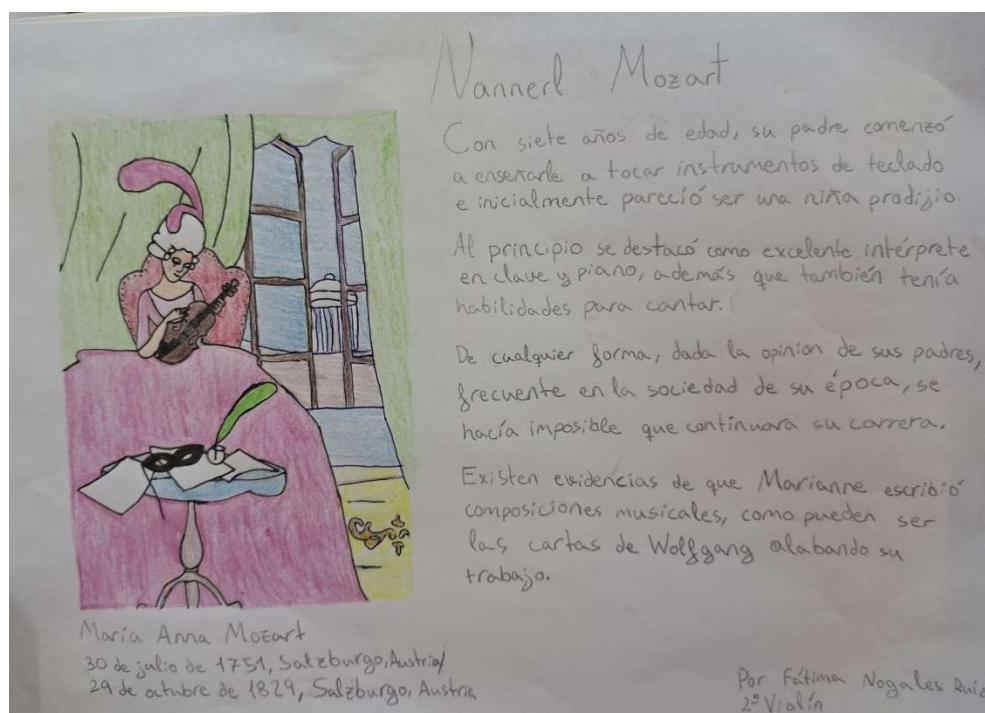 Nannerl Mozart
Con siete años de edad, su padre comenzó
a enseñarle a tocar instrumentos de teclado
e inicialmente pareció ser una niña prodijio.
Al principio se destacó como excelente intérprete
en clave y piano, además que también tenía
habilidades para cantar.
De cualquier forma, dada la opinión de sus padres,
frecuente en la sociedad de su época, se
hacía imposible que continuara su carrera.
Existen evidencias de que Marianne escribió
composiciones musicales, como pueden ser
las cartas de Wolfgang alabando su
trabajo.
María Anna Mozart
30 de julio de 1751, Salzburgo, Austria/
29 de octubre de 1829, Salzburgo, Austria
Por Fátima Nogales Ruiz
2º Violín